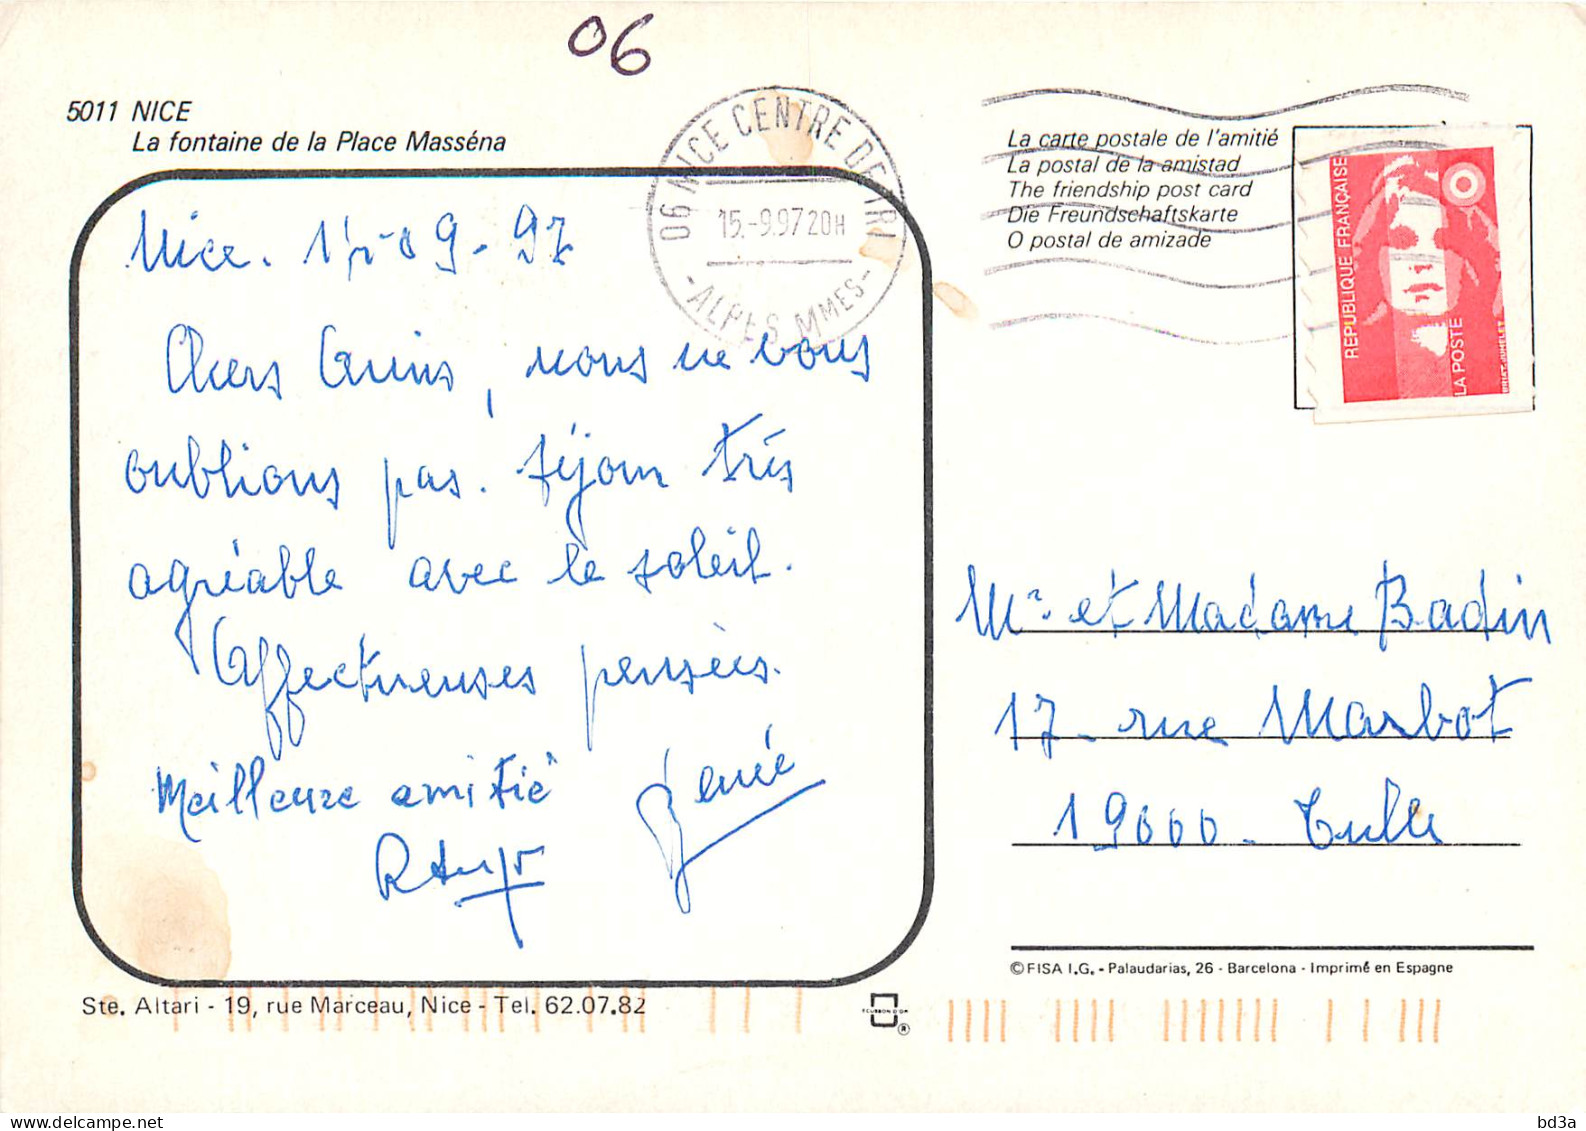 06
5011 NICE
La fontaine de la Place Masséna
06 NICE CENTRE DE TRI
15.-9.97 20H
-ALPES MMES-
La carte postale de l'amitié
La postal de la amistad
The friendship post card
Die Freundschaftskarte
O postal de amizade
REPUBLIQUE FRANÇAISE
LA POSTE
BRIAT-JUMELET
Nice. 09-97
Chers Amis, nous ne vous
oublions pas. Séjour très
agréable avec le soleil.
Affectueuses pensées.
Meilleure amitié
Renée
Mr et Madame Badin
17- rue Marbot
19000- Tulle
©FISA I.G. - Palaudarias, 26 - Barcelona - Imprimé en Espagne
Ste. Altari - 19, rue Marceau, Nice - Tel. 62.07.82
ECUSSON D'OR
®
bd3a